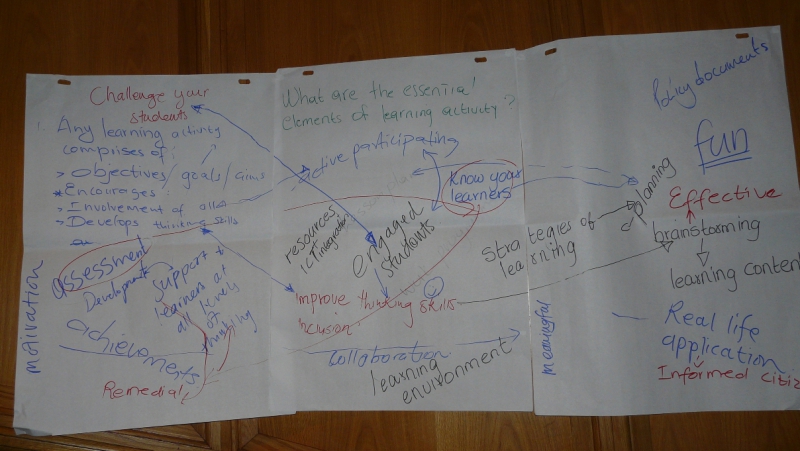 Challenge your
students
Any learning activity
comprises of:
> Objectives/goals/aims
* Encourages:
> Involvement of all
> Develops thinking skills
assessment
Development
support to
learners at
all levels
of
thinking
motivation
achievements
Remedial
What are the essential
elements of learning activity?
active participating
Know your
learners
resources
ICT integration
engaged
students
improve thinking skills
inclusion
Collaboration
learning
environment
Strategies of
learning
Policy documents
fun
planning
Effective
brainstorming
learning content
meaningful
Real life
application
Informed citiz